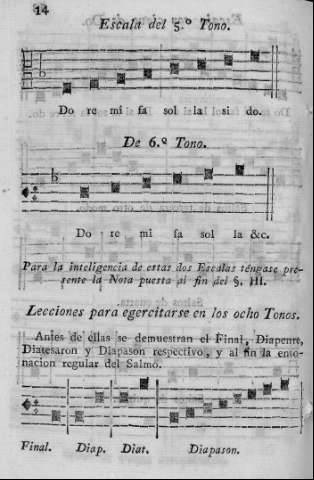 14
Escala del 5.º Tono.
Do re mi fa sol la si do.
De 6.º Tono.
Do re mi fa sol la &c.
Para la inteligencia de estas dos Escalas téngase pre-
sente la Nota puesta al fin del §. III.
Lecciones para egercitarse en los ocho Tonos.
Antes de ellas se demuestran el Final, Diapente,
Diatesaron y Diapason respectivo, y al fin la ento-
nacion regular del Salmo.
Final. Diap. Diat. Diapason.